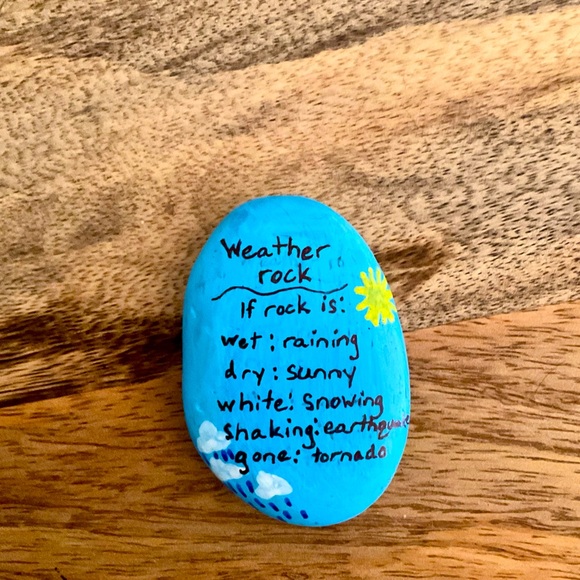 Weather
rock
If rock is:
wet: raining
dry: sunny
white: snowing
shaking: earthquake
gone: tornado